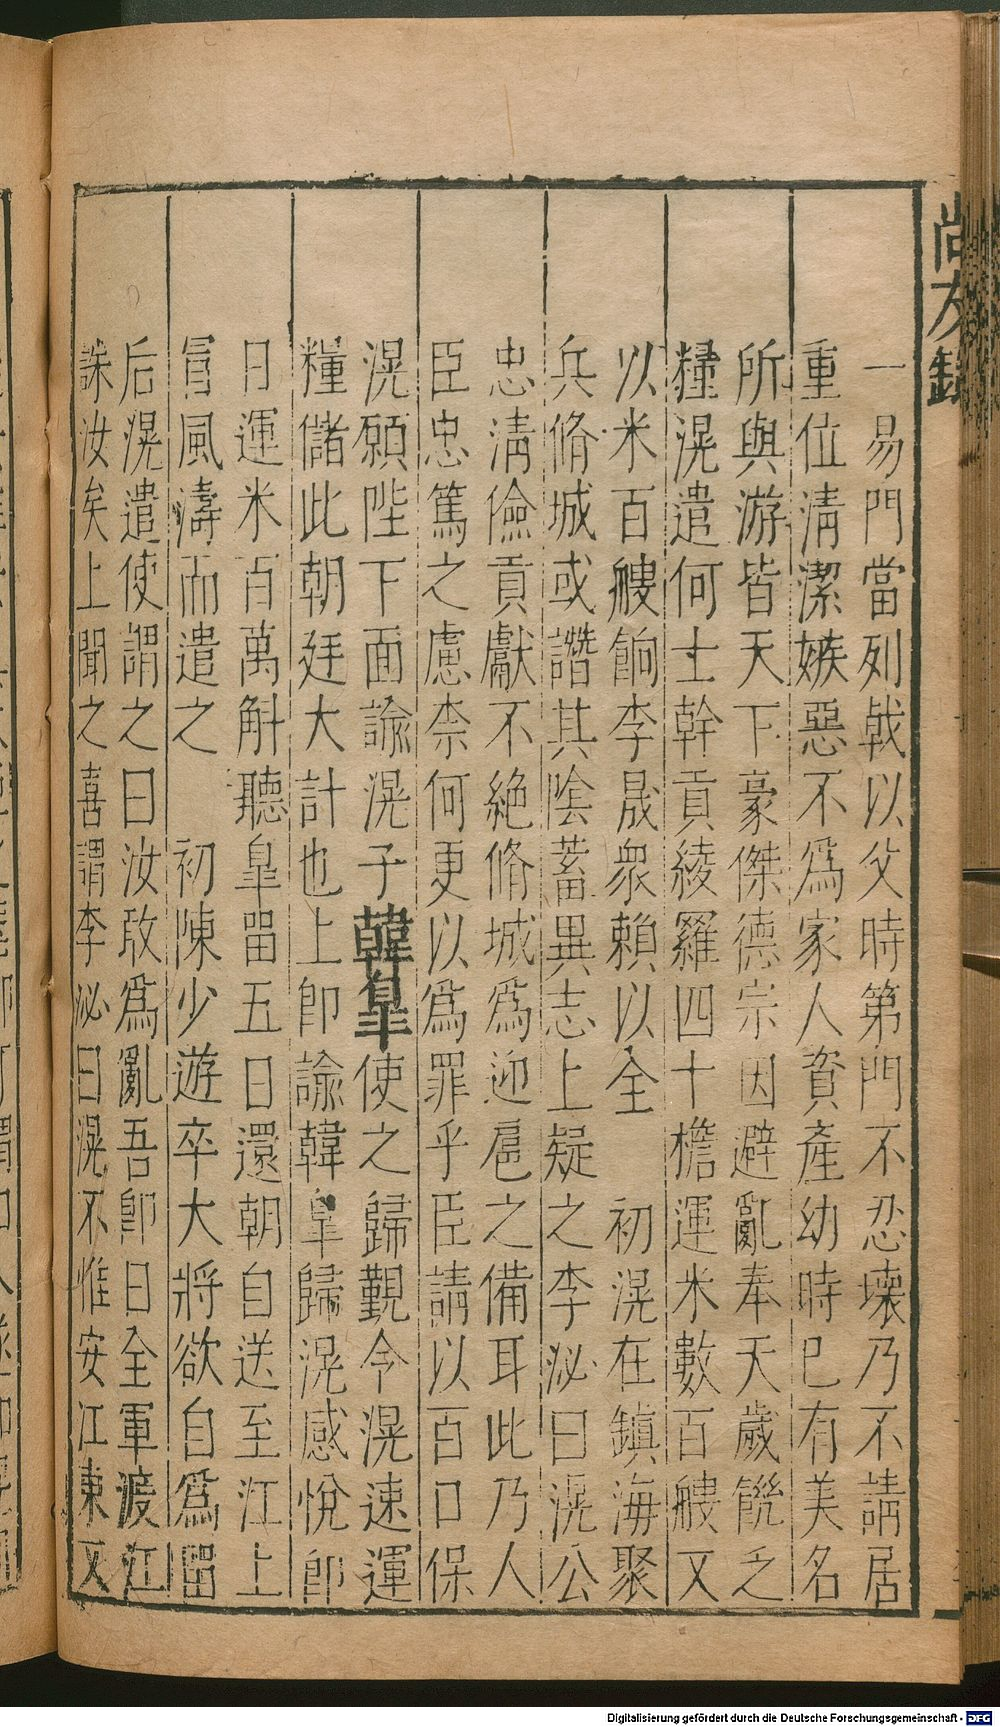 尚友錄
一易門當列戟以父時第門不忍壞乃不請居
重位淸潔嫉惡不爲家人資產幼時已有美名
所與游皆天下豪傑德宗因避亂奉天歲饑乏
糧滉遣何士幹貢綾羅四十檐運米數百艘又
以米百艘餉李晟衆賴以全　初滉在鎮海聚
兵脩城或譖其陰蓄異志上疑之李泌曰滉公
忠淸儉貢獻不絶脩城爲迎扈之備耳此乃人
臣忠篤之慮柰何更以爲罪乎臣請以百口保
滉願陛下面諭滉子韓臯使之歸覲令滉速運
糧儲此朝廷大計也上卽諭韓臯歸滉感悅卽
日運米百萬斛聽臯畱五日還朝自送至江上
冐風濤而遣之　初陳少遊卒大將欲自爲畱
后滉遣使謂之曰汝敢爲亂吾卽日全軍渡江
誅汝矣上聞之喜謂李泌曰滉不惟安江東又
Digitalisierung gefördert durch die Deutsche Forschungsgemeinschaft - DFG